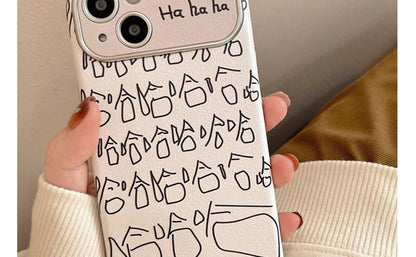 Ha ha ha
哈哈哈哈
哈哈哈哈
哈哈哈哈
哈哈哈哈
哈哈哈